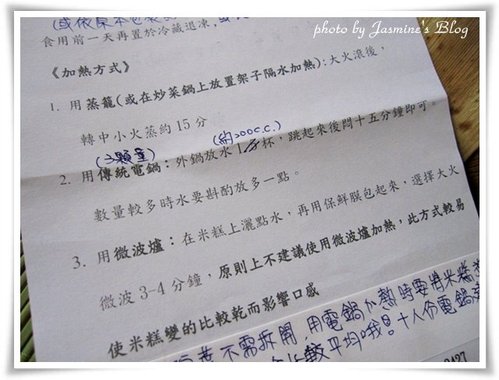 photo by Jasmine's Blog
食用前一天再置於冷藏退凍,
《加熱方式》
1. 用蒸籠(或在炒菜鍋上放置架子隔水加熱):大火滾後,
轉中小火蒸約15分
(3顆量) (約200c.c.)
2. 用傳統電鍋:外鍋放水1杯,跳起來後悶十五分鐘即可,
數量較多時水要斟酌放多一點。
3. 用微波爐:在米糕上灑點水,再用保鮮膜包起來,選擇大火
微波3-4分鐘,原則上不建議使用微波爐加熱,此方式較易
使米糕變的比較乾而影響口感
不需拆開,用電鍋加熱時要將米糕
較平均哦!十人份電鍋